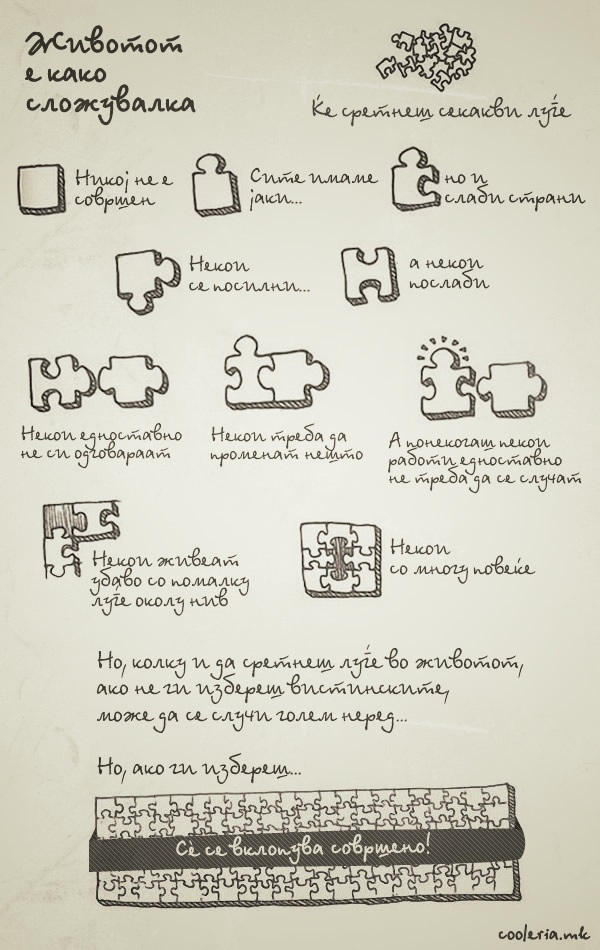 Животот
е како
сложувалка
Ќе сретнеш секакви луѓе
Никој не е
совршен
Сите имаме
јаки...
но и
слаби страни
Некои
се посилни...
а некои
послаби
Некои едноставно
не си одговараат
Некои треба да
променат нешто
А понекогаш некои
работи едноставно
не треба да се случат
Некои живеат
убаво со помалку
луѓе околу нив
Некои
со многу повеќе
Но, колку и да сретнеш луѓе во животот,
ако не ги избереш вистинските,
може да се случи голем неред...
Но, ако ги избереш...
Сѐ се вклопува совршено!
cooleria.mk